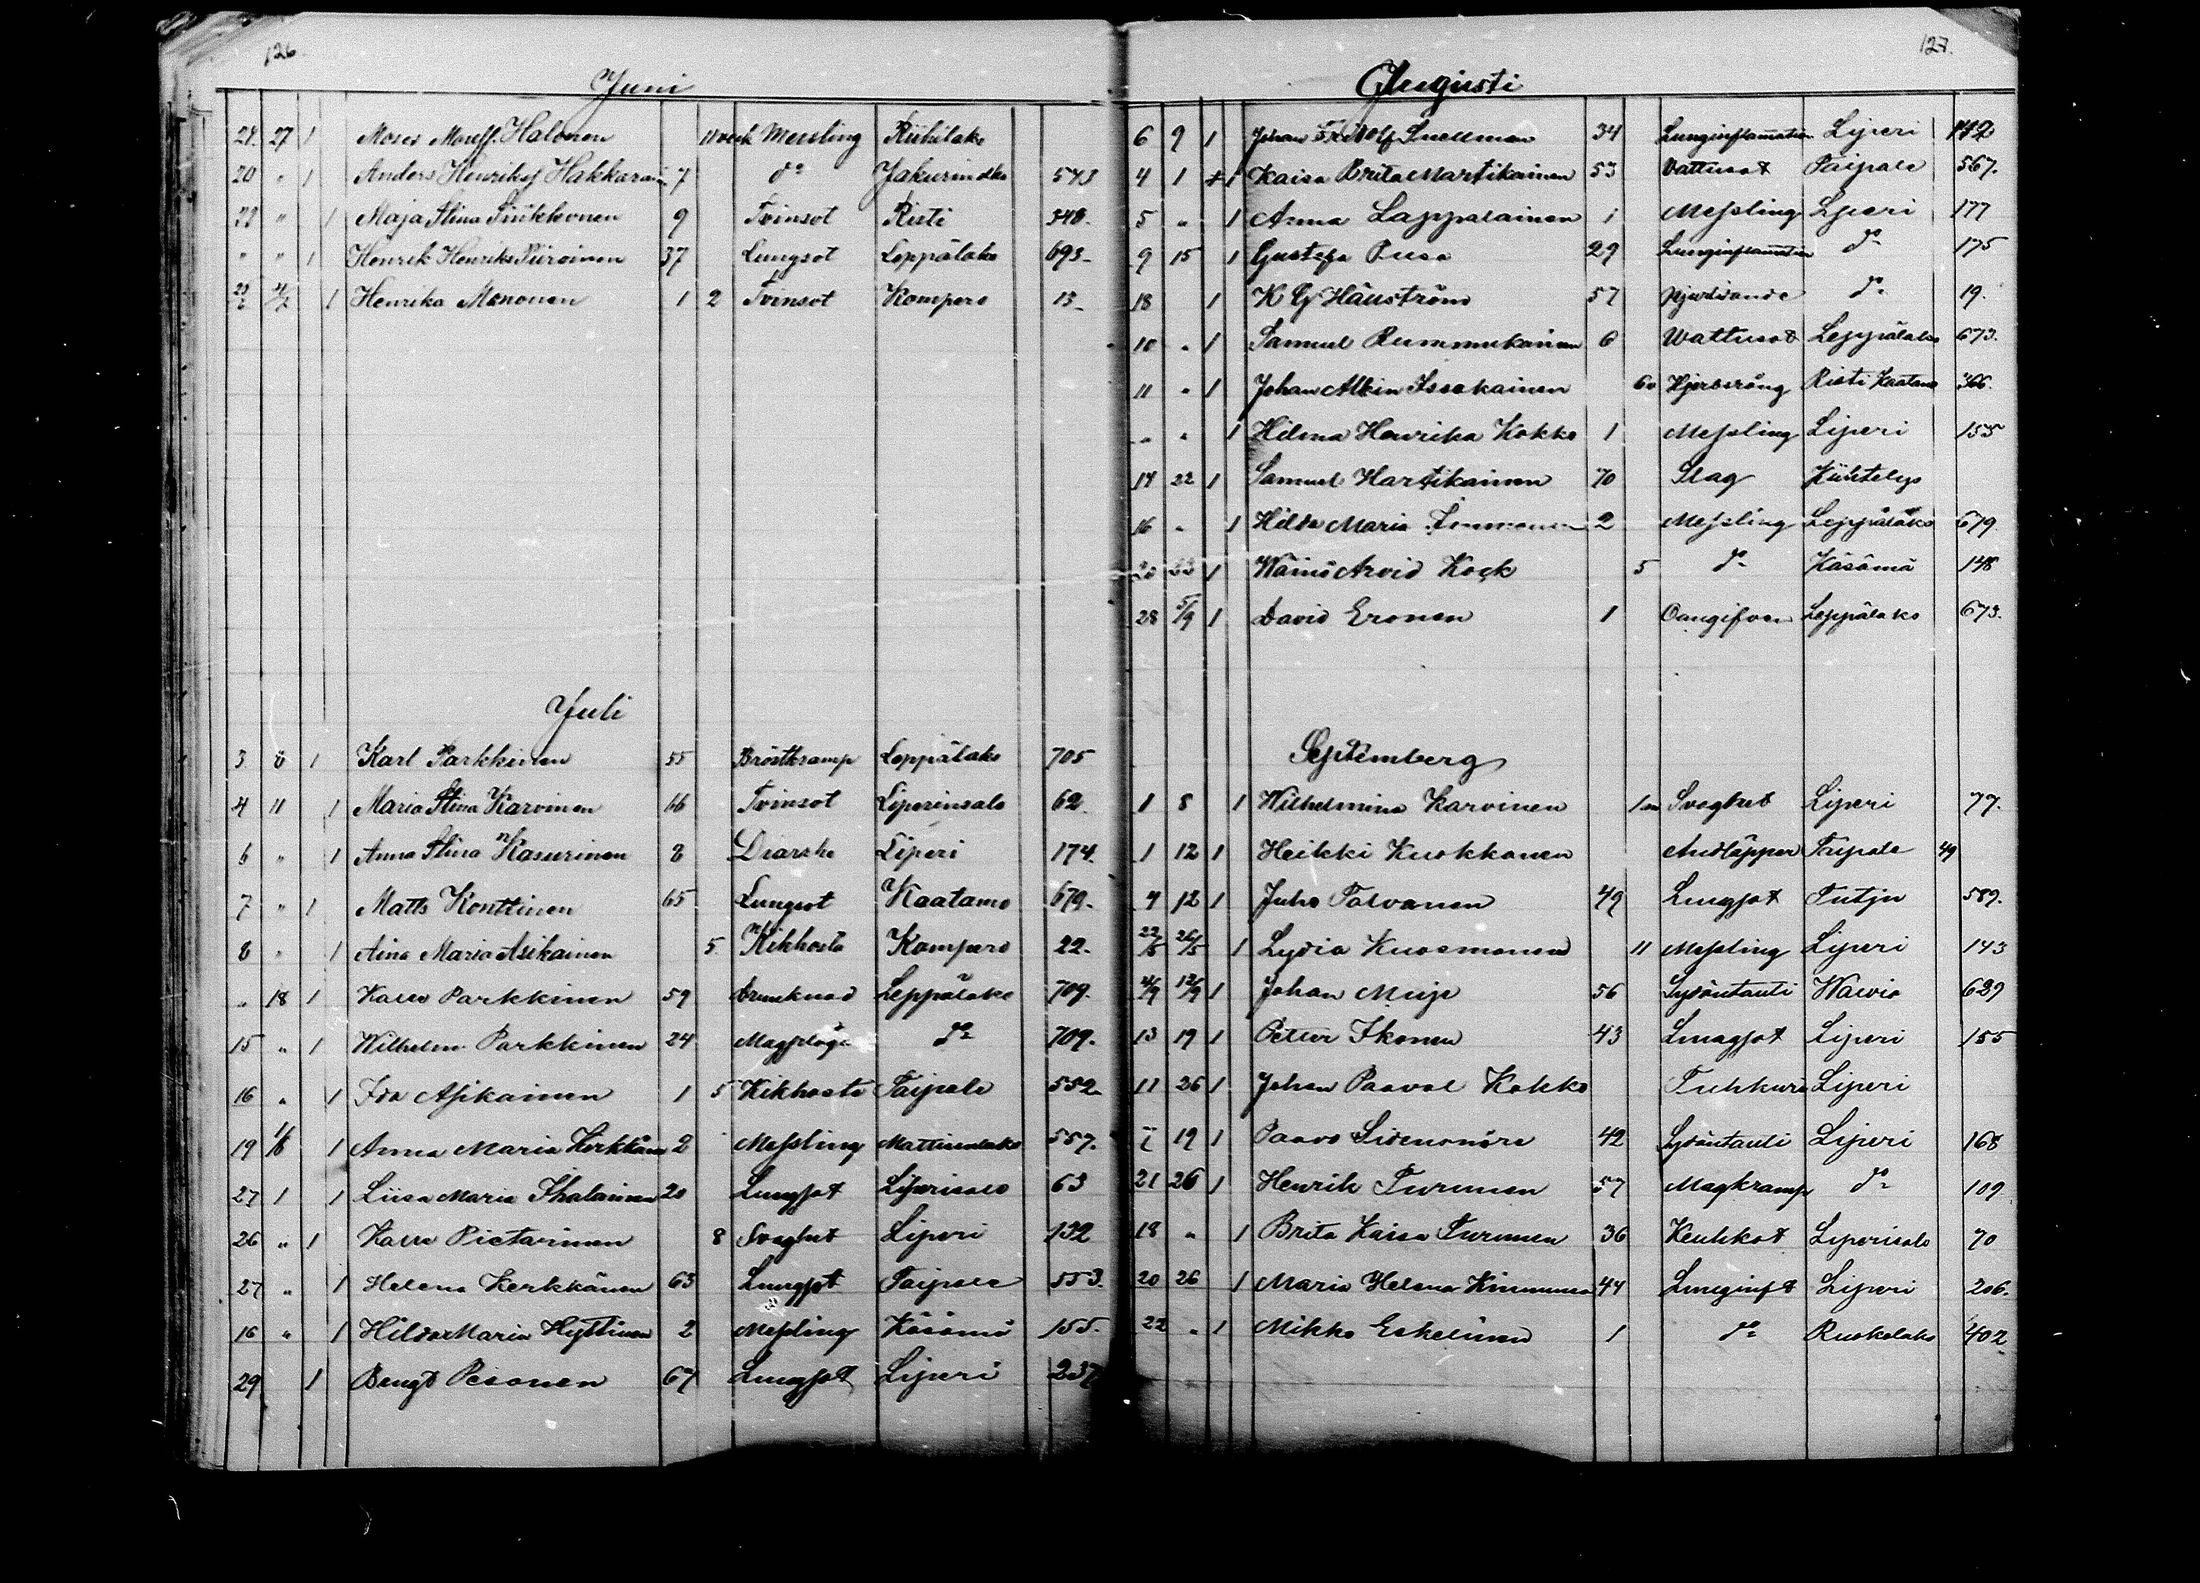 126
Juni
24. 27 1 Moses Halonen 11 veck Messling Riihilaks
20 " 1 Anders Henriks Hakkarainen 7 do Jakurinvaara 543
22 " 1 Maja Stina 9 Tvinsot Risti 348.
" " 1 Henrik Henriks Piiroinen 37 Lungsot Leppälaks 693
1 Henrika Mononen 1 2 Tvinsot Kompero 13
Juli
3 8 1 Karl Parkkinen 55 Bröstkramp Leppälaks 705
4 11 1 Maria Stina Karvinen 66 Tvinsot Liperinsalo 62
6 " 1 Anna Stina Kasurinen 8 Diarrhe Liperi 174.
7 " 1 Matts Konttinen 65 Lungsot Kaatamo 679.
8 " 1 Aina Maria Asikainen 5 Kikhosta Kompero 22.
" 18 1 Parkkinen 59 drunknad Leppälaks 709.
15 " 1 Wilhelm Parkkinen 24 do 709.
16 " 1 Ida Asikainen 1 5 Kikhosta Taipale 552
19 1/8 1 Anna Maria Kerkkänen 2 Messling Mattisenlaks 557.
27 1 1 Liisa Maria Ihalainen 20 Lungsot Liperisalo 63
26 " 1 Pietarinen 8 Svaghet Liperi 132
27 " 1 Helena Kerkkänen 63 Lungsot Taipale 553.
16 " 1 Hilda Maria Hyttinen 2 Messling Käsämä 155.
29 1 Bengt Pesonen 67 Lungsot Liperi 237
127.
Augusti
6 9 1 Johan Snellman 34 Lunginflammation Liperi 142
4 1 1 Kaisa Brita Martikainen 53 Vattusot Taipale 567.
5 " 1 Anna Lappalainen 1 Messling Liperi 177
9 15 1 Gustefa Pusa 29 Lunginflammation do 175
18 1 K G Häuström 57 do 19.
10 " 1 Samuel Rummukainen 6 Wattusot Leppälaks 673.
11 " 1 Johan Albin Issakainen Risti Kaatamo 366.
" " 1 Hilma Henrika Kokko 1 Messling Liperi 155
14 22 1 Samuel Hartikainen 70 Slag Kiihtelys
16 " 1 Hilda Maria 2 Messling Leppälaks 679
20 23 1 Wäinö Arvid Kock 5 do Käsämä 148
28 5/9 1 David Eronen 1 Oangifven Leppälaks 673.
Septemberg
1 8 1 Wilhelmina Karvinen 1 m Svaghet Liperi 77.
1 12 1 Heikki Kuokkanen Andtäpper Taipale 49
4 12 1 Juho Tolvanen 49 Lungsot Tutju 589.
22/5 26/5 1 Lydia Kuosmonen 11 Messling Liperi 143
4/9 12/9 1 Johan Muje 56 Sydäntauti Waivio 629
13 19 1 Petter Ikonen 43 Lungsot Liperi 155
11 26 1 Johan Paavol Kokko Tuhkuri Liperi
7 19 1 Paavo Sidensnöre 42 Sydäntauti Liperi 168
21 26 1 Henrik Turunen 57 Magkramp do 109
18 " 1 Brita Kaisa Turunen 36 Keuhkot Liperisalo 70
20 26 1 Maria Helena Kinnunen 44 Lunginft Liperi 206.
22 " 1 Mikko Eskelinen 1 do Ruokolaks 402